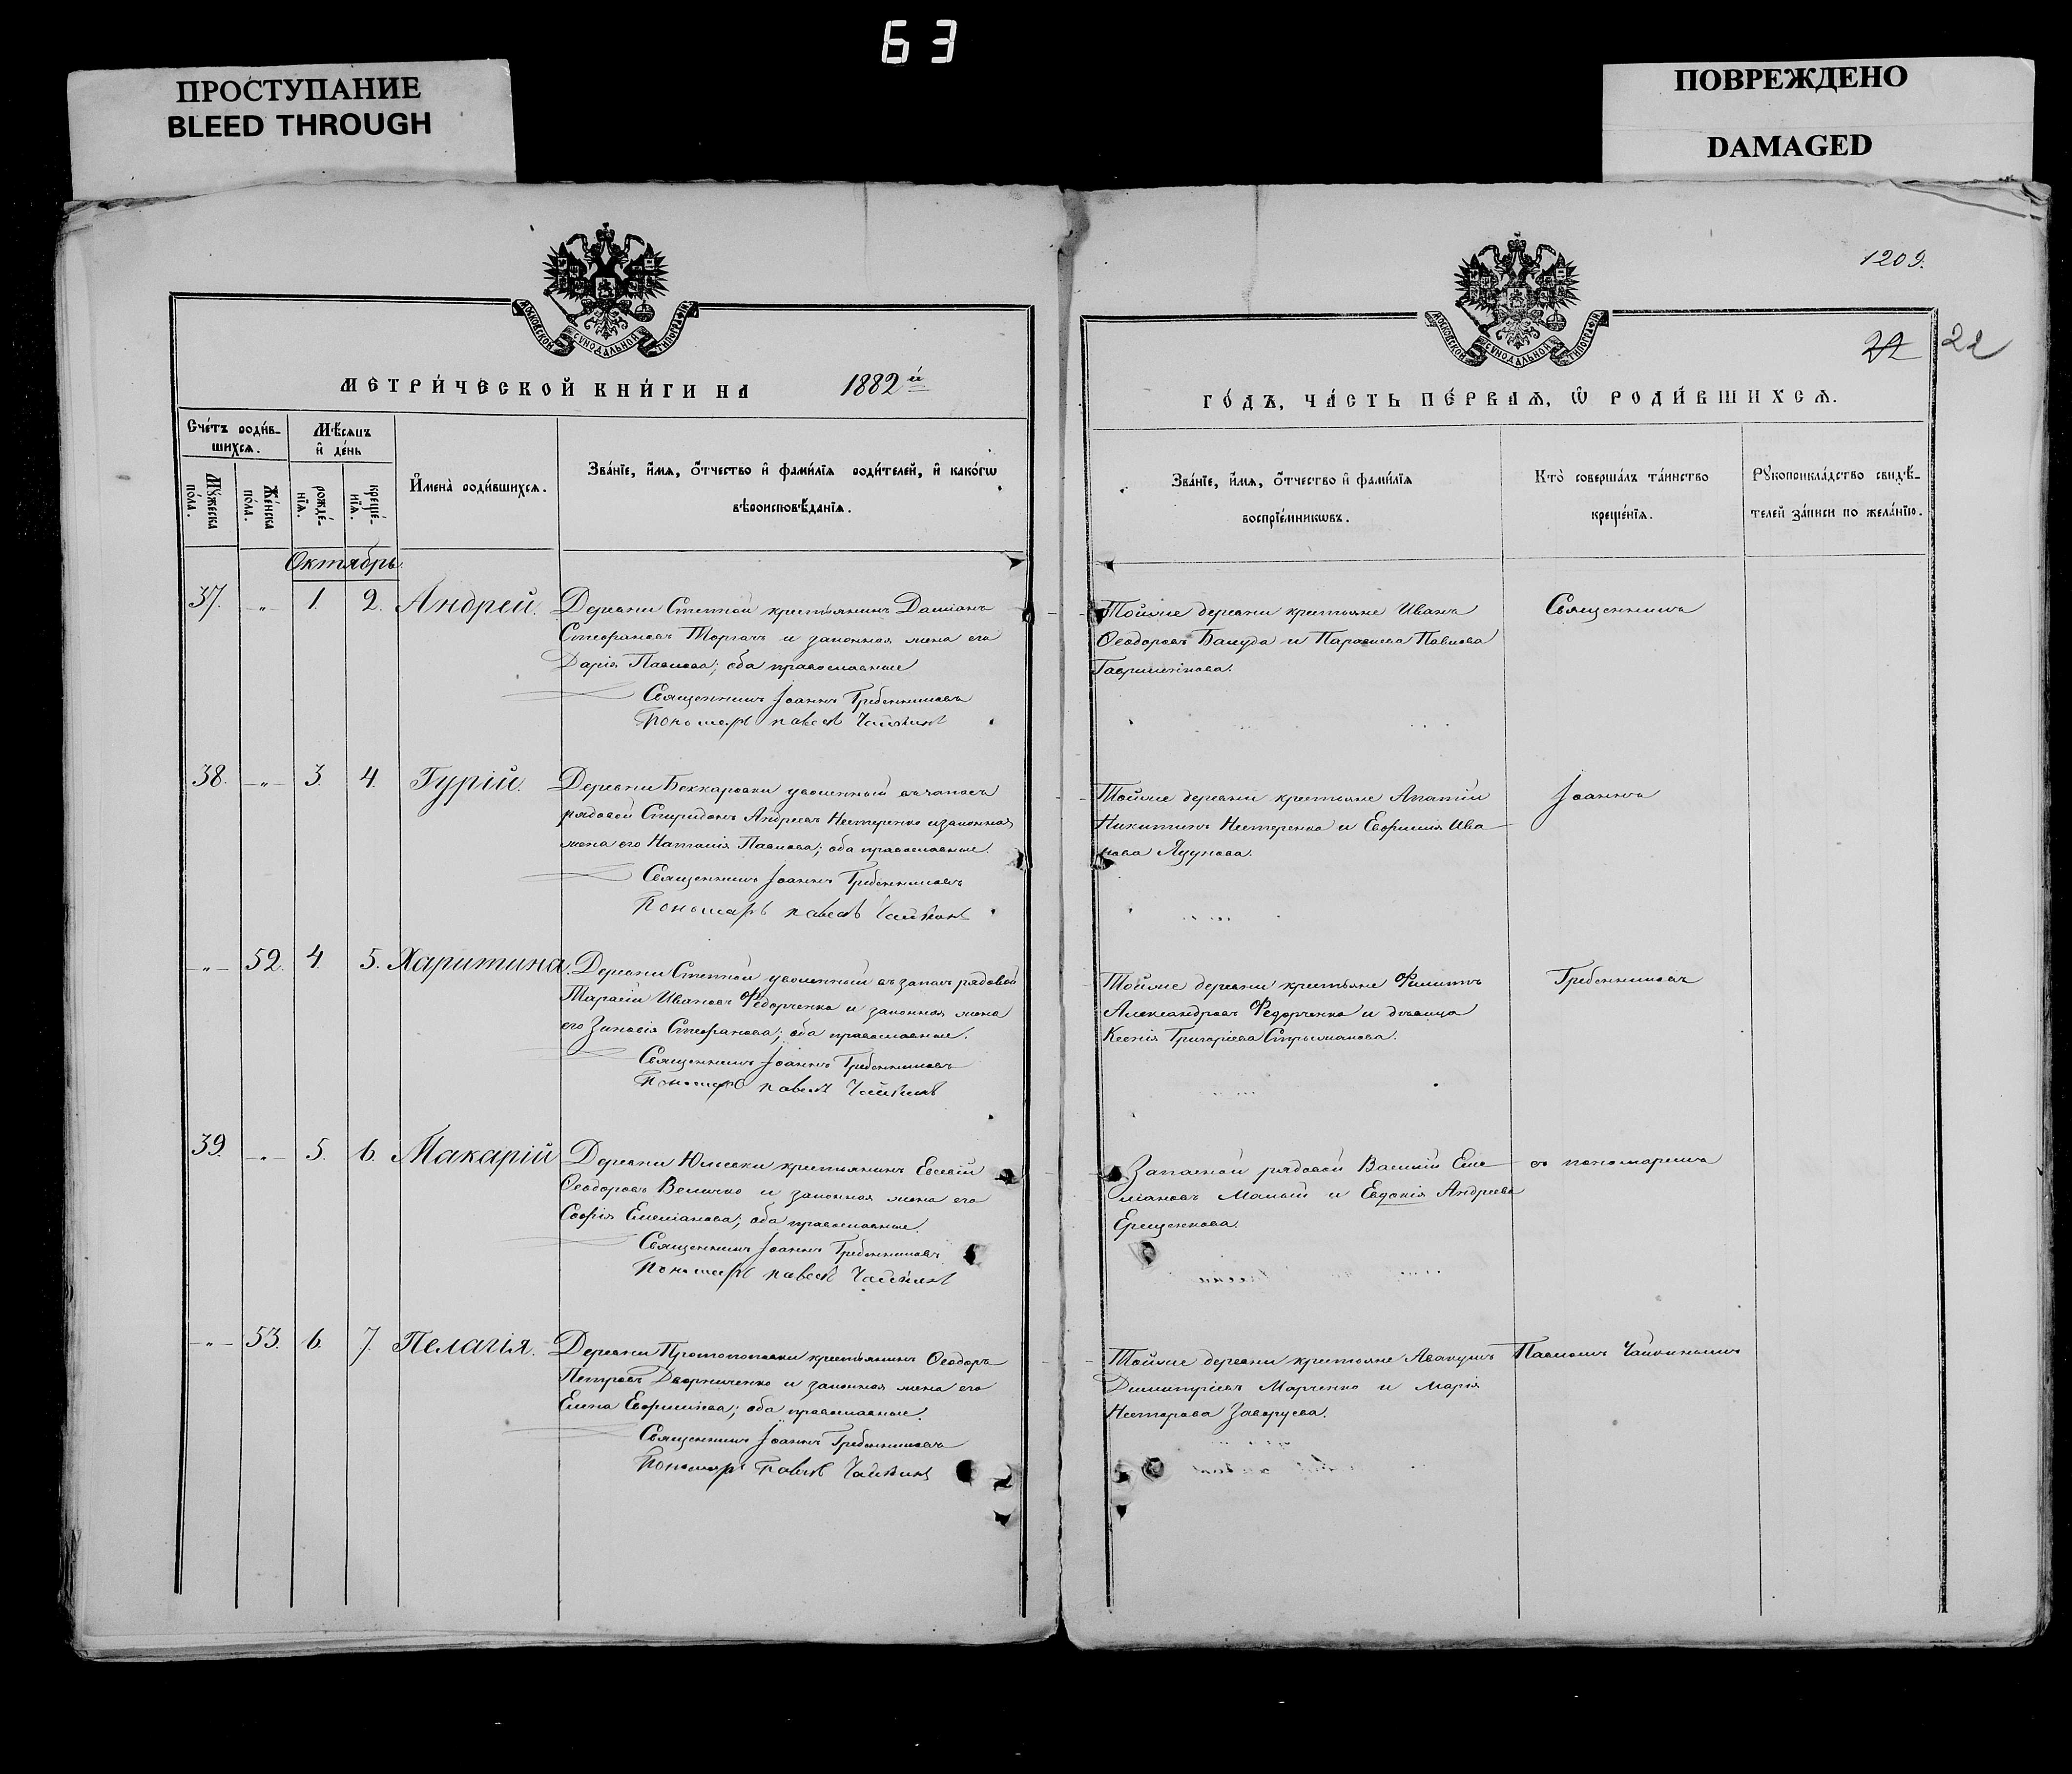 63
ПРОСТУПАНИЕ
BLEED THROUGH
ПОВРЕЖДЕНО
DAMAGED
1209.
22 22
МОСКОВСКОЙ СѴНОДАЛЬНОЙ ТИПОГРАФІИ
МОСКОВСКОЙ СѴНОДАЛЬНОЙ ТИПОГРАФІИ
МЕТРИ́ЧЕСКОЙ КНИ́ГИ НА 1882й
ГО́ДЪ, ЧА́СТЬ ПЕ́РВАЯ, Ѡ҆ РОДИ́ВШИХСЯ.
Сче́тъ роди́в-
шихся.
Му́жеска по́ла.
Же́нска по́ла.
Мѣ́сяцъ и҆ де́нь
рожде́нїя.
креще́нїя.
И҆мена̀ роди́вшихся.
Зва́нїе, и҆́мя, ѻ҆́тчество и҆ фами́лїя роди́телей, и҆ како́гѡ
вѣроисповѣ́данїя.
Зва́нїе, и҆́мя, ѻ҆́тчество и҆ фами́лїя
воспрїе́мникѡвъ.
Кто̀ соверша́лъ та́инство
креще́нїя.
Рꙋкоприкла́дство свидѣ́-
телей за́писи по жела́нїю.
Октябрь.
37. -"- 1. 2. Андрей.
Деревни Степной крестьянинъ Даміанъ
Стефановъ Торгачъ и законная жена его
Дарія Павлова; оба православные
Священникъ Іоаннъ Гребенниковъ
Пономарь Павелъ Чайкинъ
Тойже деревни крестьяне Иванъ
Ѳеодоровъ Бакуда и Параскева Павлова
Гавришенкова.
Священникъ
38. -"- 3. 4. Гурій.
Деревни Беккаровки уволенный въ запасъ
рядовой Спиридонъ Андреевъ Нестеренко и законная
жена его Наталія Павлова; оба православные.
Священникъ Іоаннъ Гребенниковъ
Пономарь Павелъ Чайкинъ
Тойже деревни крестьяне Ипатій
Никитинъ Нестеренко и Евфимія Ива
нова Ядунова.
Іоаннъ
-"- 52. 4. 5. Харитина.
Деревни Степной уволенный въ запасъ рядовой
Тарасій Ивановъ Федорченко и законная жена
его Зиновія Стефанова; оба православные.
Священникъ Іоаннъ Гребенниковъ
Пономарь Павелъ Чайкинъ
Тойже деревни крестьяне Филиппъ
Александровъ Федорченко и дѣвица
Ксенія Григоріева Стрыжакова.
Гребенниковъ
39. -"- 5. 6. Макарій
Деревни Юльевки крестьянинъ Евсевій
Ѳеодоровъ Величко и законная жена его
Софія Емеліанова; оба православные.
Священникъ Іоаннъ Гребенниковъ
Пономарь Павелъ Чайкинъ
Запасной рядовой Василій Еме
ліановъ Малый и Евдокія Андреева
Ерещенкова.
съ пономаремъ
-"- 53. 6. 7. Пелагія.
Деревни Протопоповки крестьянинъ Ѳеодоръ
Петровъ Дворниченко и законная жена его
Елена Евфиміева; оба православные.
Священникъ Іоаннъ Гребенниковъ
Пономарь Павелъ Чайкинъ
Тойже деревни крестьяне Аввакумъ
Димитріевъ Марченко и Марія
Несторова Заворуева.
Павломъ Чайкинымъ